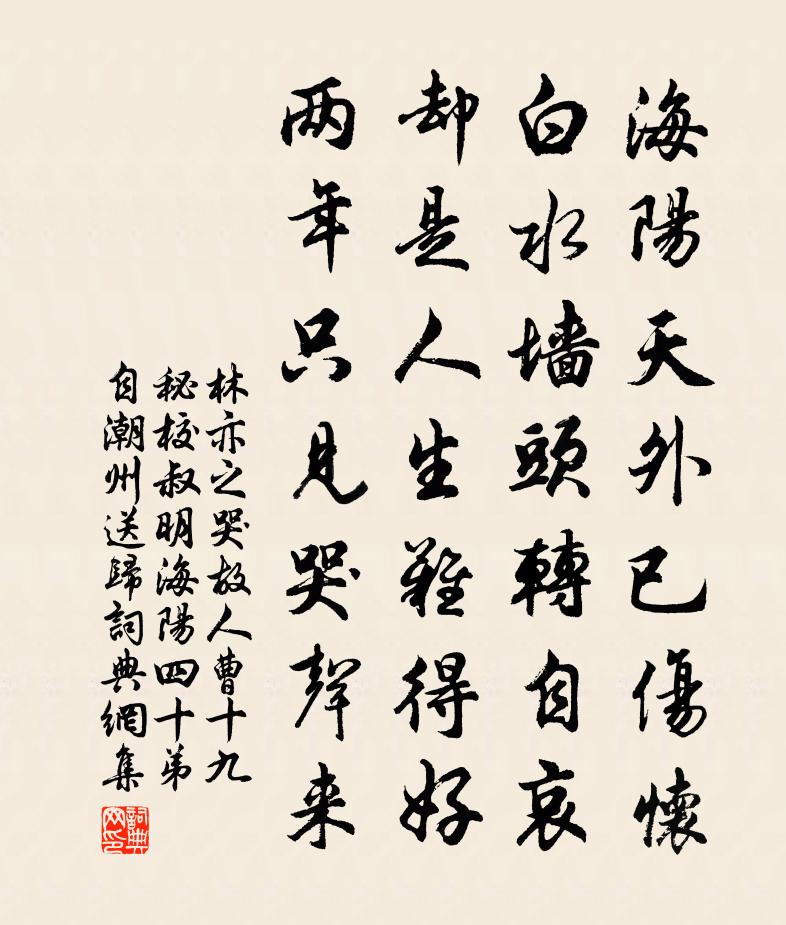 海陽天外已傷懷
白水墙頭轉自哀
却是人生難得好
两年只見哭聲来
林亦之哭故人曹十九
秘校叔明海陽四十弟
自潮州送歸詞典網集
詞典网印